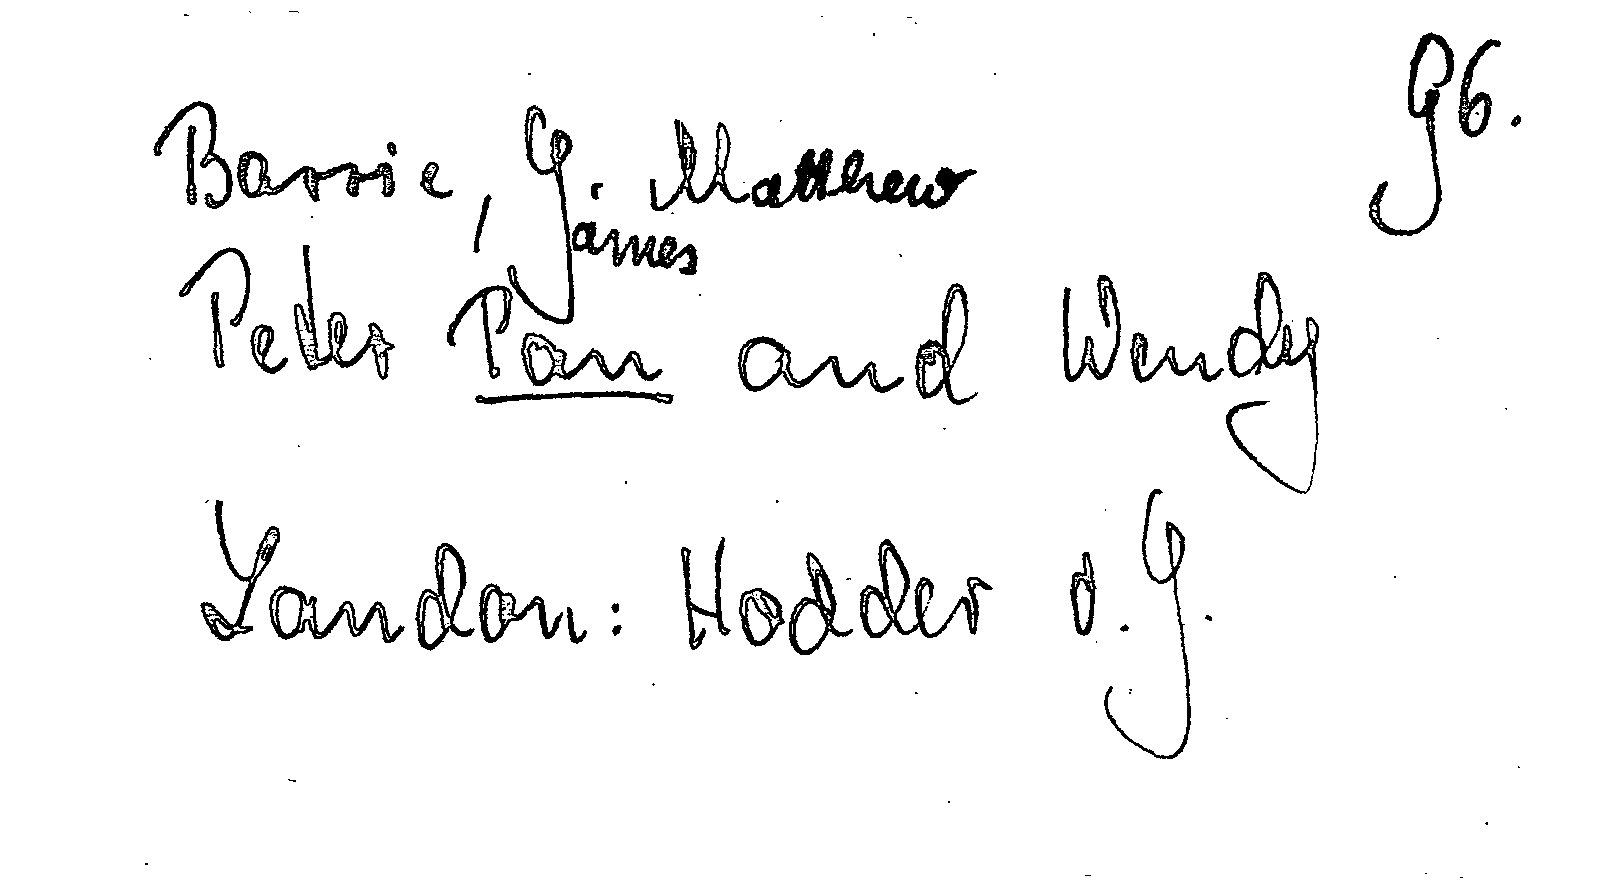 96.
Barrie, J. Matthew
James
Peter Pan and Wendy
London: Hodder o.J.